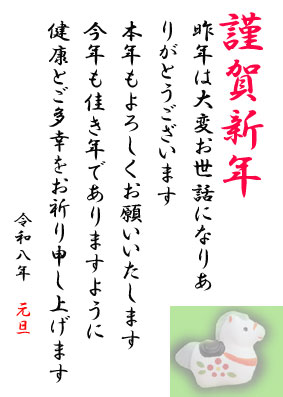 謹賀新年
昨年は大変お世話になりあ
りがとうございます
本年もよろしくお願いいたします
今年も佳き年でありますように
健康とご多幸をお祈り申し上げます
令和八年 元旦